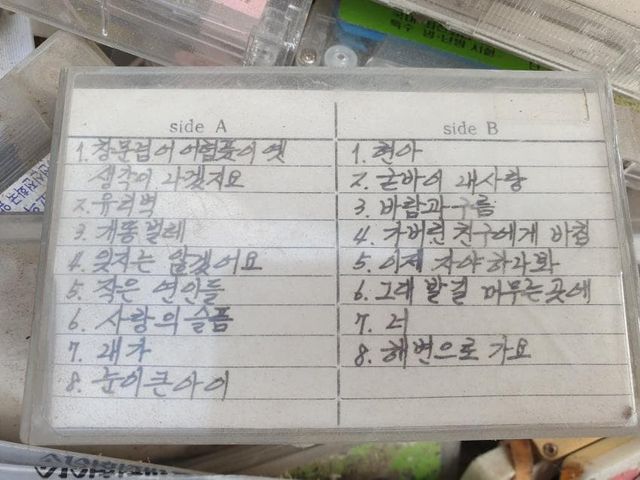 side A
1. 창문넘어 어렴풋이 옛
생각이 나겠지요
2. 유리벽
3. 개똥벌레
4. 잊지는 않겠어요
5. 작은 연인들
6. 사랑의 슬픔
7. 내가
8. 눈이큰아이
side B
1. 현아
2. 굳바이 내사랑
3. 바람과구름
4. 가버린친구에게 바침
5. 이제 자야하나봐
6. 그대 발길 머무는곳에
7. 너
8. 해변으로 가요